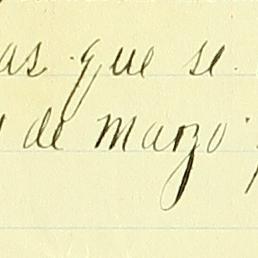 as que se
de Marzo